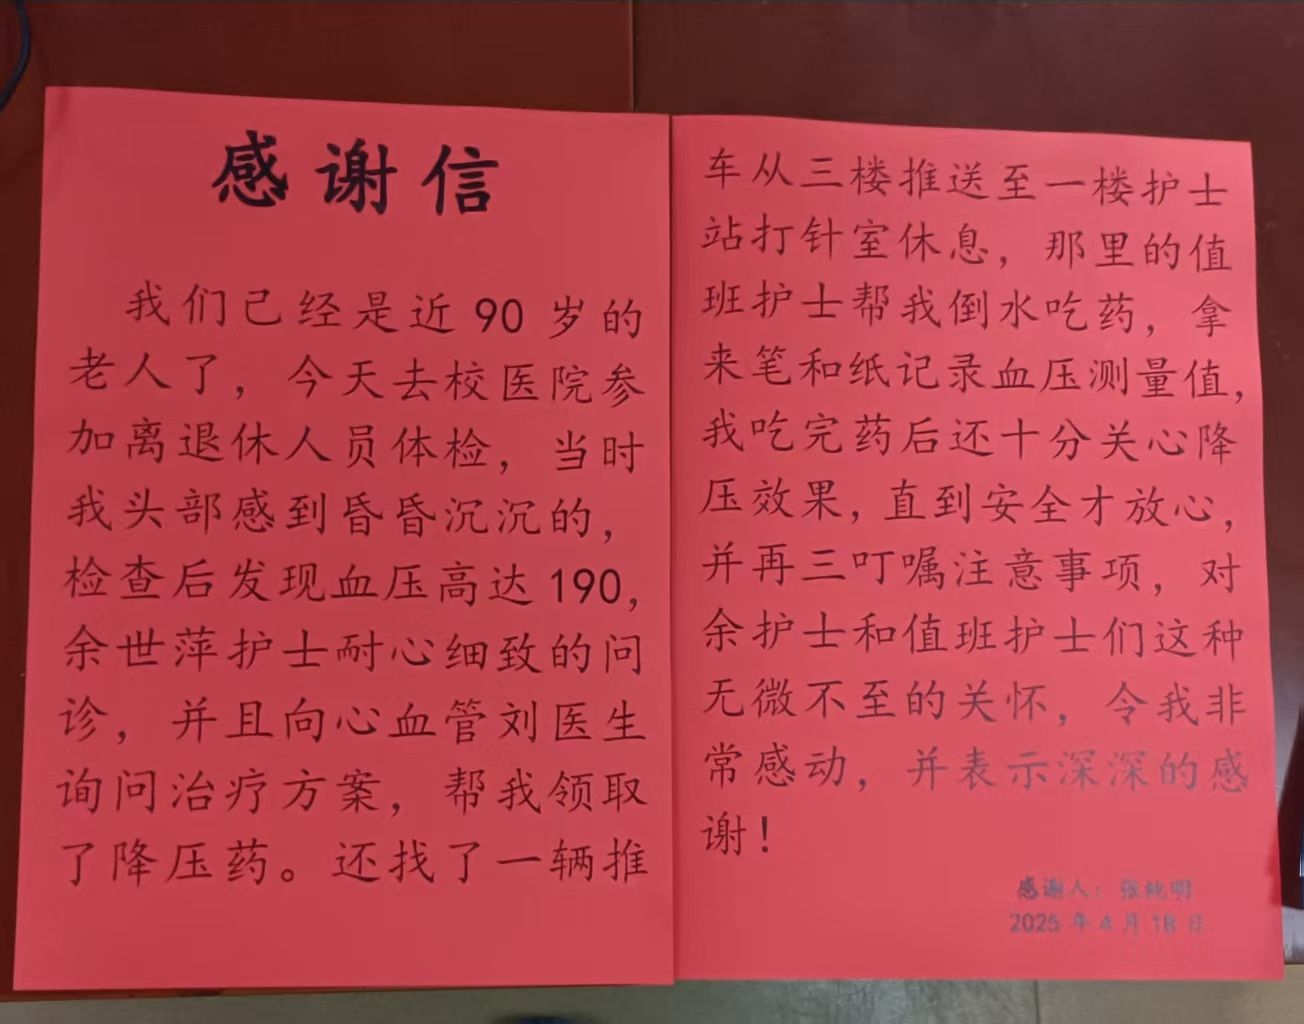 感谢信
我们已经是近90岁的
老人了，今天去校医院参
加离退休人员体检，当时
我头部感到昏昏沉沉的，
检查后发现血压高达190，
余世萍护士耐心细致的问
诊，并且向心血管刘医生
询问治疗方案，帮我领取
了降压药。还找了一辆推
车从三楼推送至一楼护士
站打针室休息，那里的值
班护士帮我倒水吃药，拿
来笔和纸记录血压测量值，
我吃完药后还十分关心降
压效果，直到安全才放心，
并再三叮嘱注意事项，对
余护士和值班护士们这种
无微不至的关怀，令我非
常感动，并表示深深的感
谢！
感谢人：张纯明
2025年4月18日